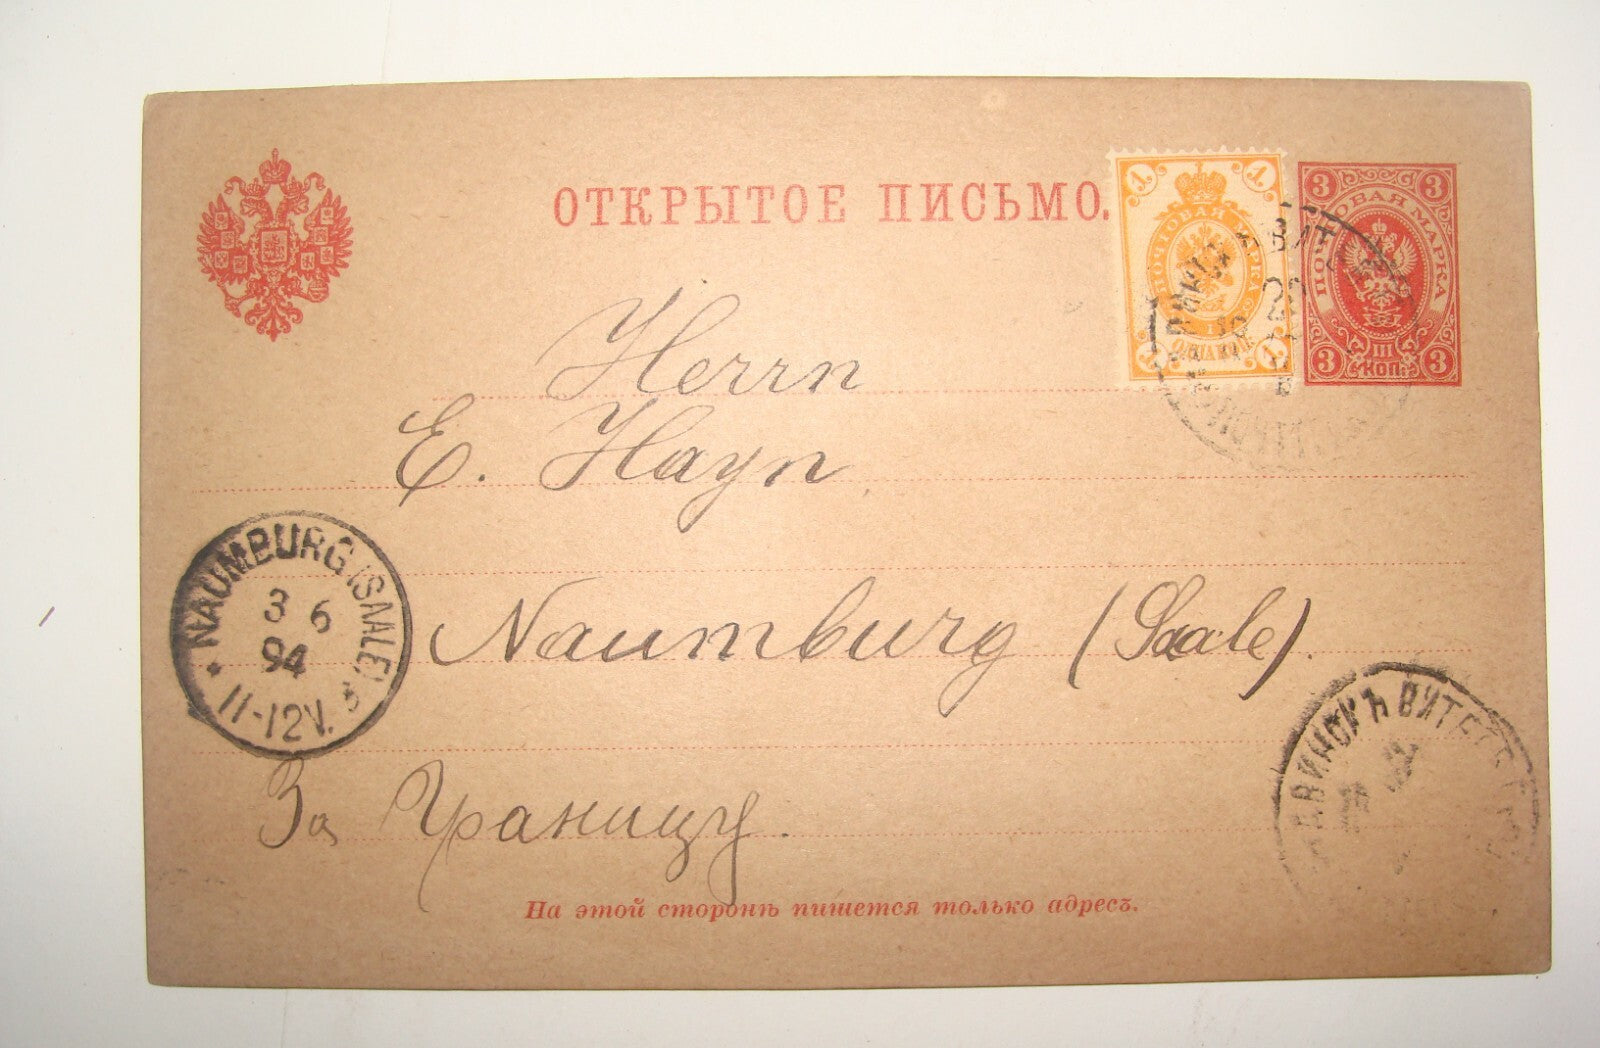 ОТКРЫТОЕ ПИСЬМО.
1 1
ПОЧТОВАЯ МАРКА
1 1
3 3
ПОЧТОВАЯ МАРКА
III
3 КОП. 3
Herrn
E. Hayn
NAUMBURG (SAALE) 3
3 6
94
11-12V.
Naumburg (Saale).
ДВИНСКЪ ВИТЕБ
За Границу.
На этой сторонѣ пишется только адресъ.